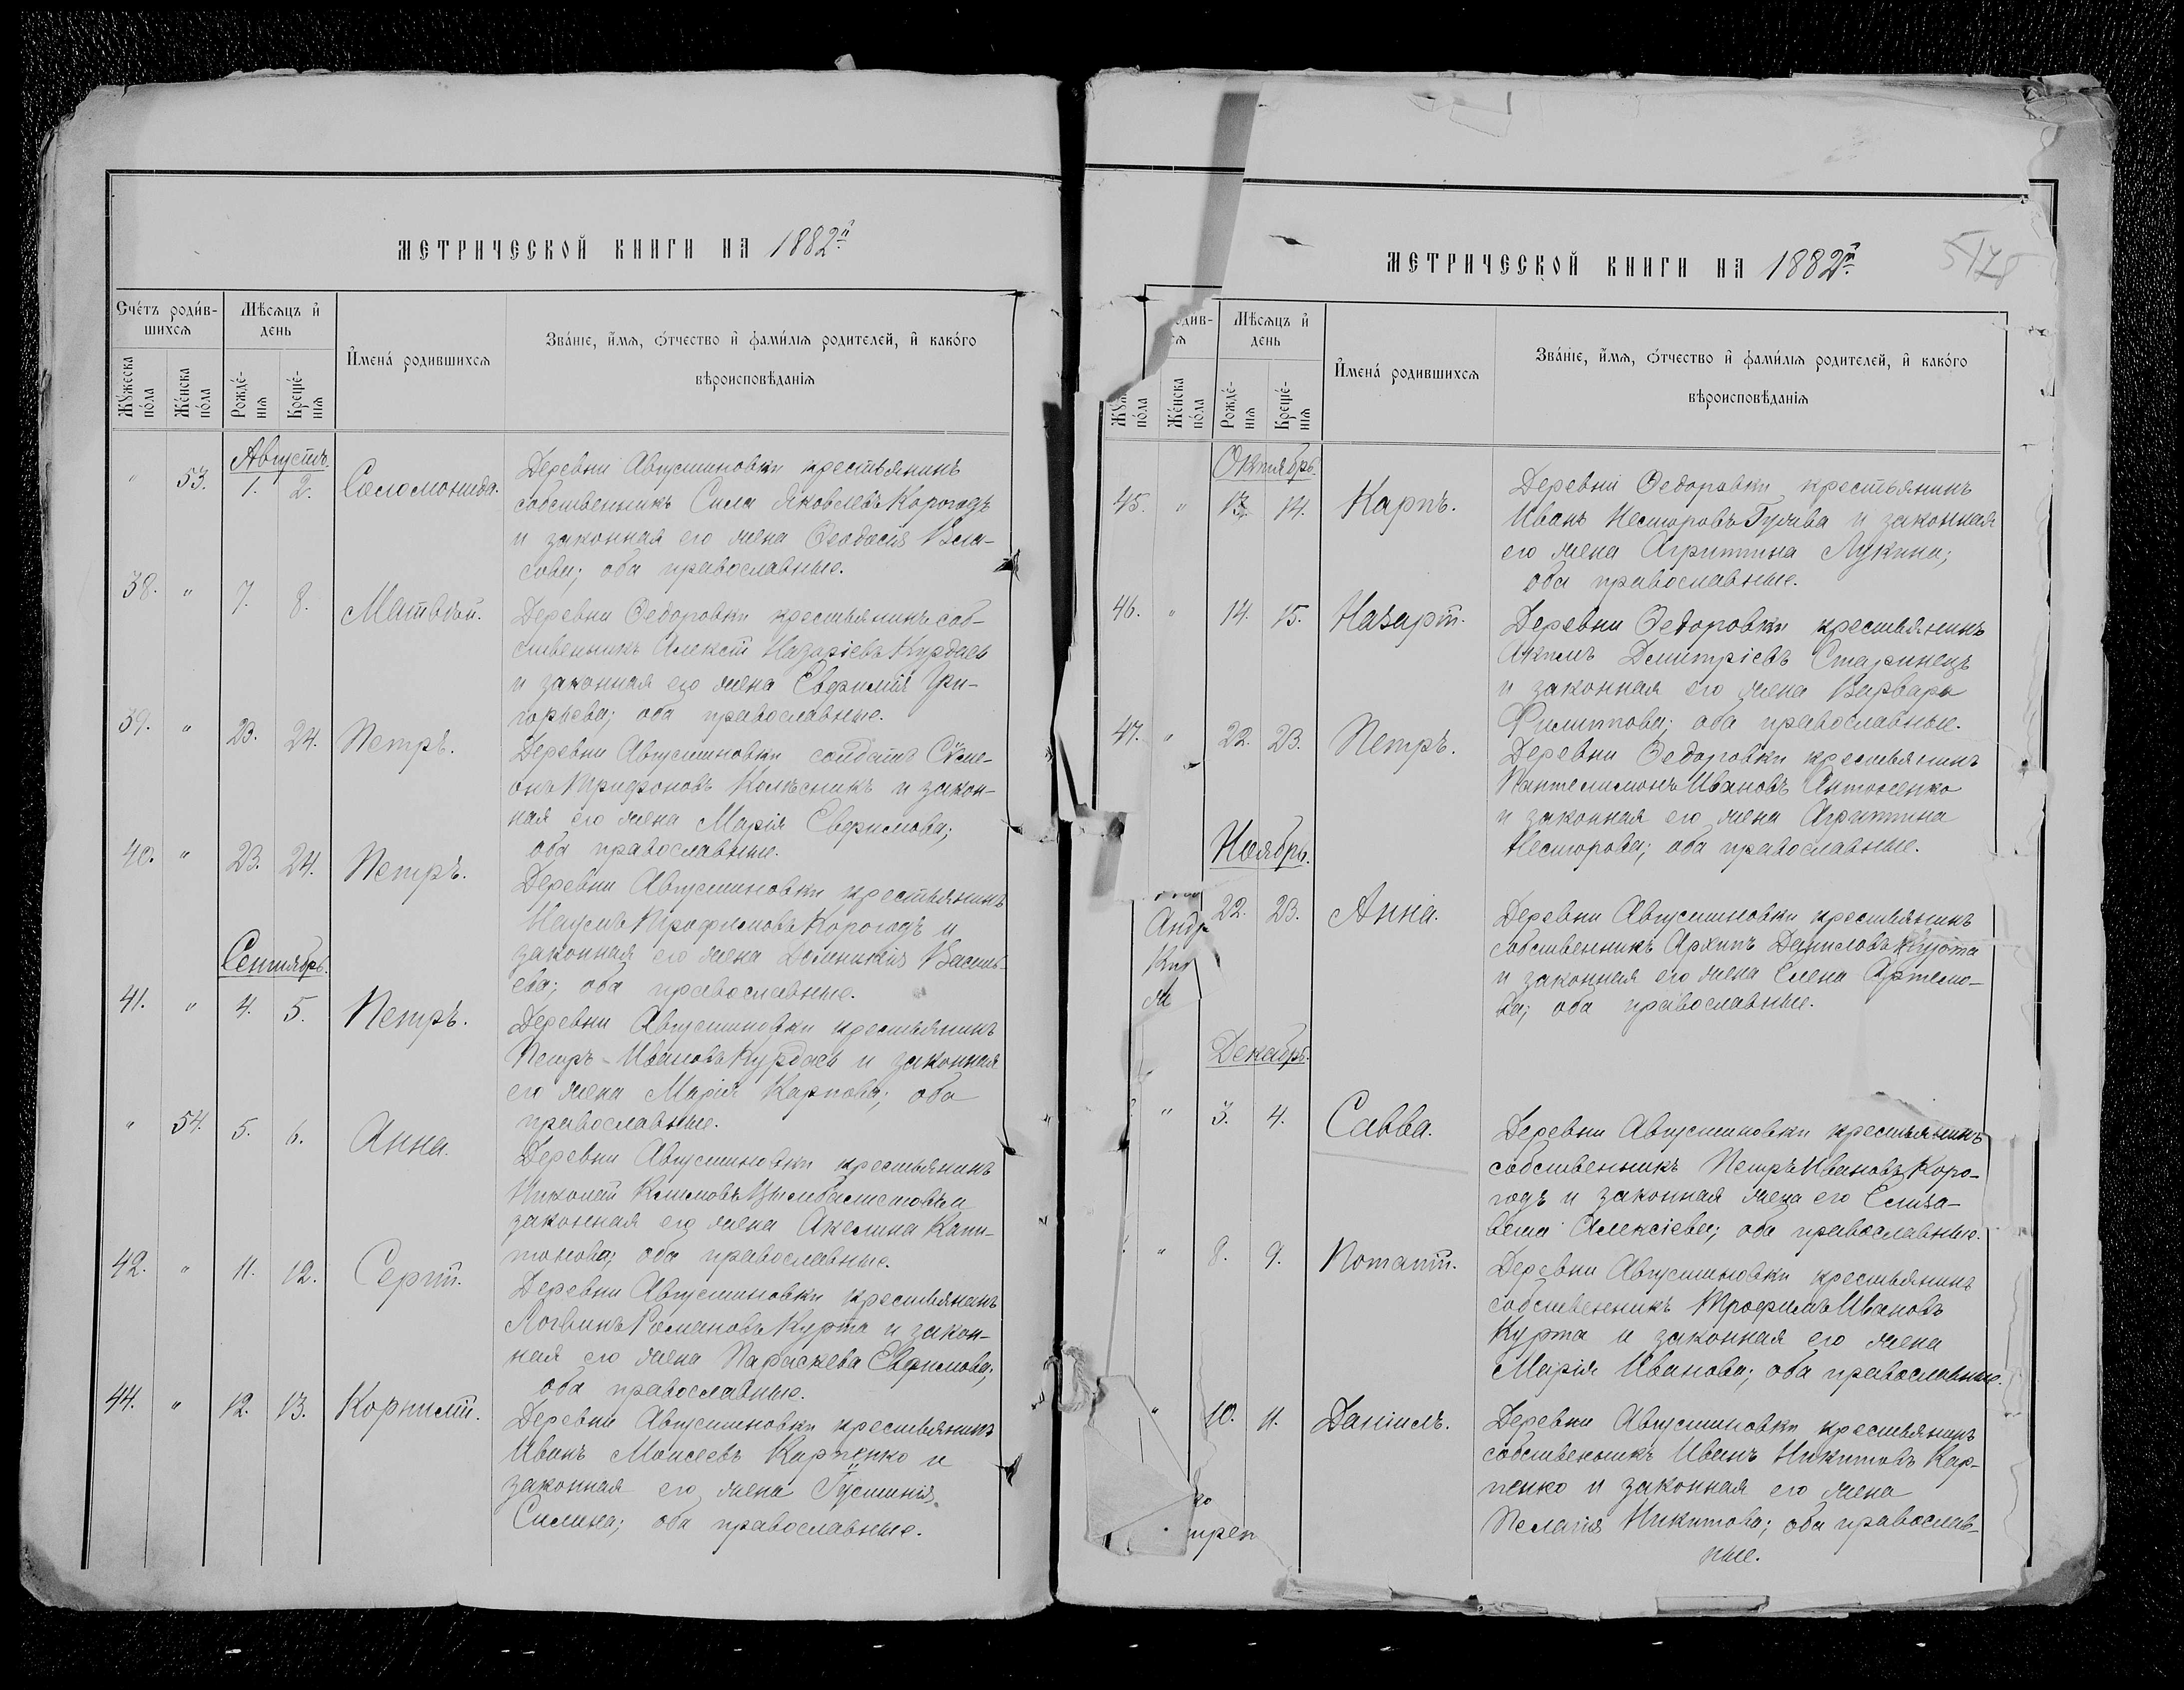 МЕТРИЧЕСКОЙ КНИГИ НА 1882й
Сче́тъ роди́в-
шихсѧ
Мѣ́сѧцъ и҆
день
Мꙋжеска по́ла
Же́нска по́ла
Рожде́-
нїѧ
Креще́-
нїѧ
И҆мена̀ родившихсѧ
Зва́нїе, и҆́мѧ, ѻ҆́тчество и҆ фами́лїѧ родителей, и҆ како́го
вѣроисповѣ́данїѧ
Августъ.
" 53. 1. 2. Соломонида.
Деревни Августиновки крестьянинъ
собственникъ Сила Яковлевъ Корогодъ
и законная его жена Ѳеодосія Вла-
сова; оба православные.
38. " 7. 8. Матвѣй.
Деревни Ѳедоровки крестьянинъ соб-
ственникъ Алексѣй Назаріевъ Курдаев
и законная его жена Евфимія Гри-
горьева; оба православные.
39. " 23. 24. Петръ.
Деревни Августиновки солдатъ Сѵме-
онъ Трифоновъ Колѣсникъ и закон-
ная его жена Марія Евфимова;
оба православные.
40. " 23. 24. Петръ.
Деревни Августиновки крестьянинъ
Наумъ Трофимовъ Корогодъ и
законная его жена Домникія Василь-
ева; оба православные.
Сентябрь.
41. " 4. 5. Петръ.
Деревни Августиновки крестьянинъ
Петръ Ивановъ Курдаев и законная
его жена Марія Карпова; оба
православные.
" 54. 5. 6. Анна.
Деревни Августиновки крестьянинъ
Николай Климовъ и
законная его жена Акелина Капи-
тонова; оба православные.
42. " 11. 12. Сергій.
Деревни Августиновки крестьянинъ
Логвинъ Романовъ Курта и закон-
ная его жена Параскева Евфимова;
оба православные.
44. " 12. 13. Корнилій.
Деревни Августиновки крестьянинъ
Иванъ Моисеевъ Карпенко и
законная его жена Іустинія
Силина; оба православные.
МЕТРИЧЕСКОЙ КНИГИ НА 1882й
одив-
сѧ
Мѣ́сѧцъ и҆
день
Мꙋ
по́ла
Же́нска по́ла
Рожде́-
нїѧ
Креще́-
нїѧ
И҆мена̀ родившихсѧ
Зва́нїе, и҆́мѧ, ѻ҆́тчество и҆ фами́лїѧ родителей, и҆ како́го
вѣроисповѣ́данїѧ
Октябрь.
45. " 13. 14. Карпъ.
Деревни Ѳедоровки крестьянинъ
Иванъ Несторовъ и законная
его жена Агриппина Лукина;
оба православные.
46. " 14. 15. Назарій.
Деревни Ѳедоровки крестьянинъ
Акимъ Димитріевъ Старинецъ
и законная его жена Варвара
Филиппова; оба православные.
47. " 22. 23. Петръ.
Деревни Ѳедоровки крестьянинъ
Пантелимонъ Ивановъ Антоненко
и законная его жена Агриппина
Несторова; оба православные.
Ноябрь.
Андр
Кир
22. 23. Анна.
Деревни Августиновки крестьянинъ
собственникъ Архипъ Даниловъ Курта
и законная его жена Елена Артемо-
ва; оба православные.
Декабрь.
" 3. 4. Савва.
Деревни Августиновки крестьянинъ
собственникъ Петръ Ивановъ Коро-
годъ и законная жена его Елиза-
вета Алексіева; оба православные.
" 8. 9. Потапій.
Деревни Августиновки крестьянинъ
собственникъ Трофимъ Ивановъ
Курта и законная его жена
Марія Иванова; оба православные.
" 10. 11. Даніилъ.
Деревни Августиновки крестьянинъ
собственникъ Иванъ Никитовъ Кар-
пенко и законная его жена
Пелагія Никитова; оба православ-
ные.